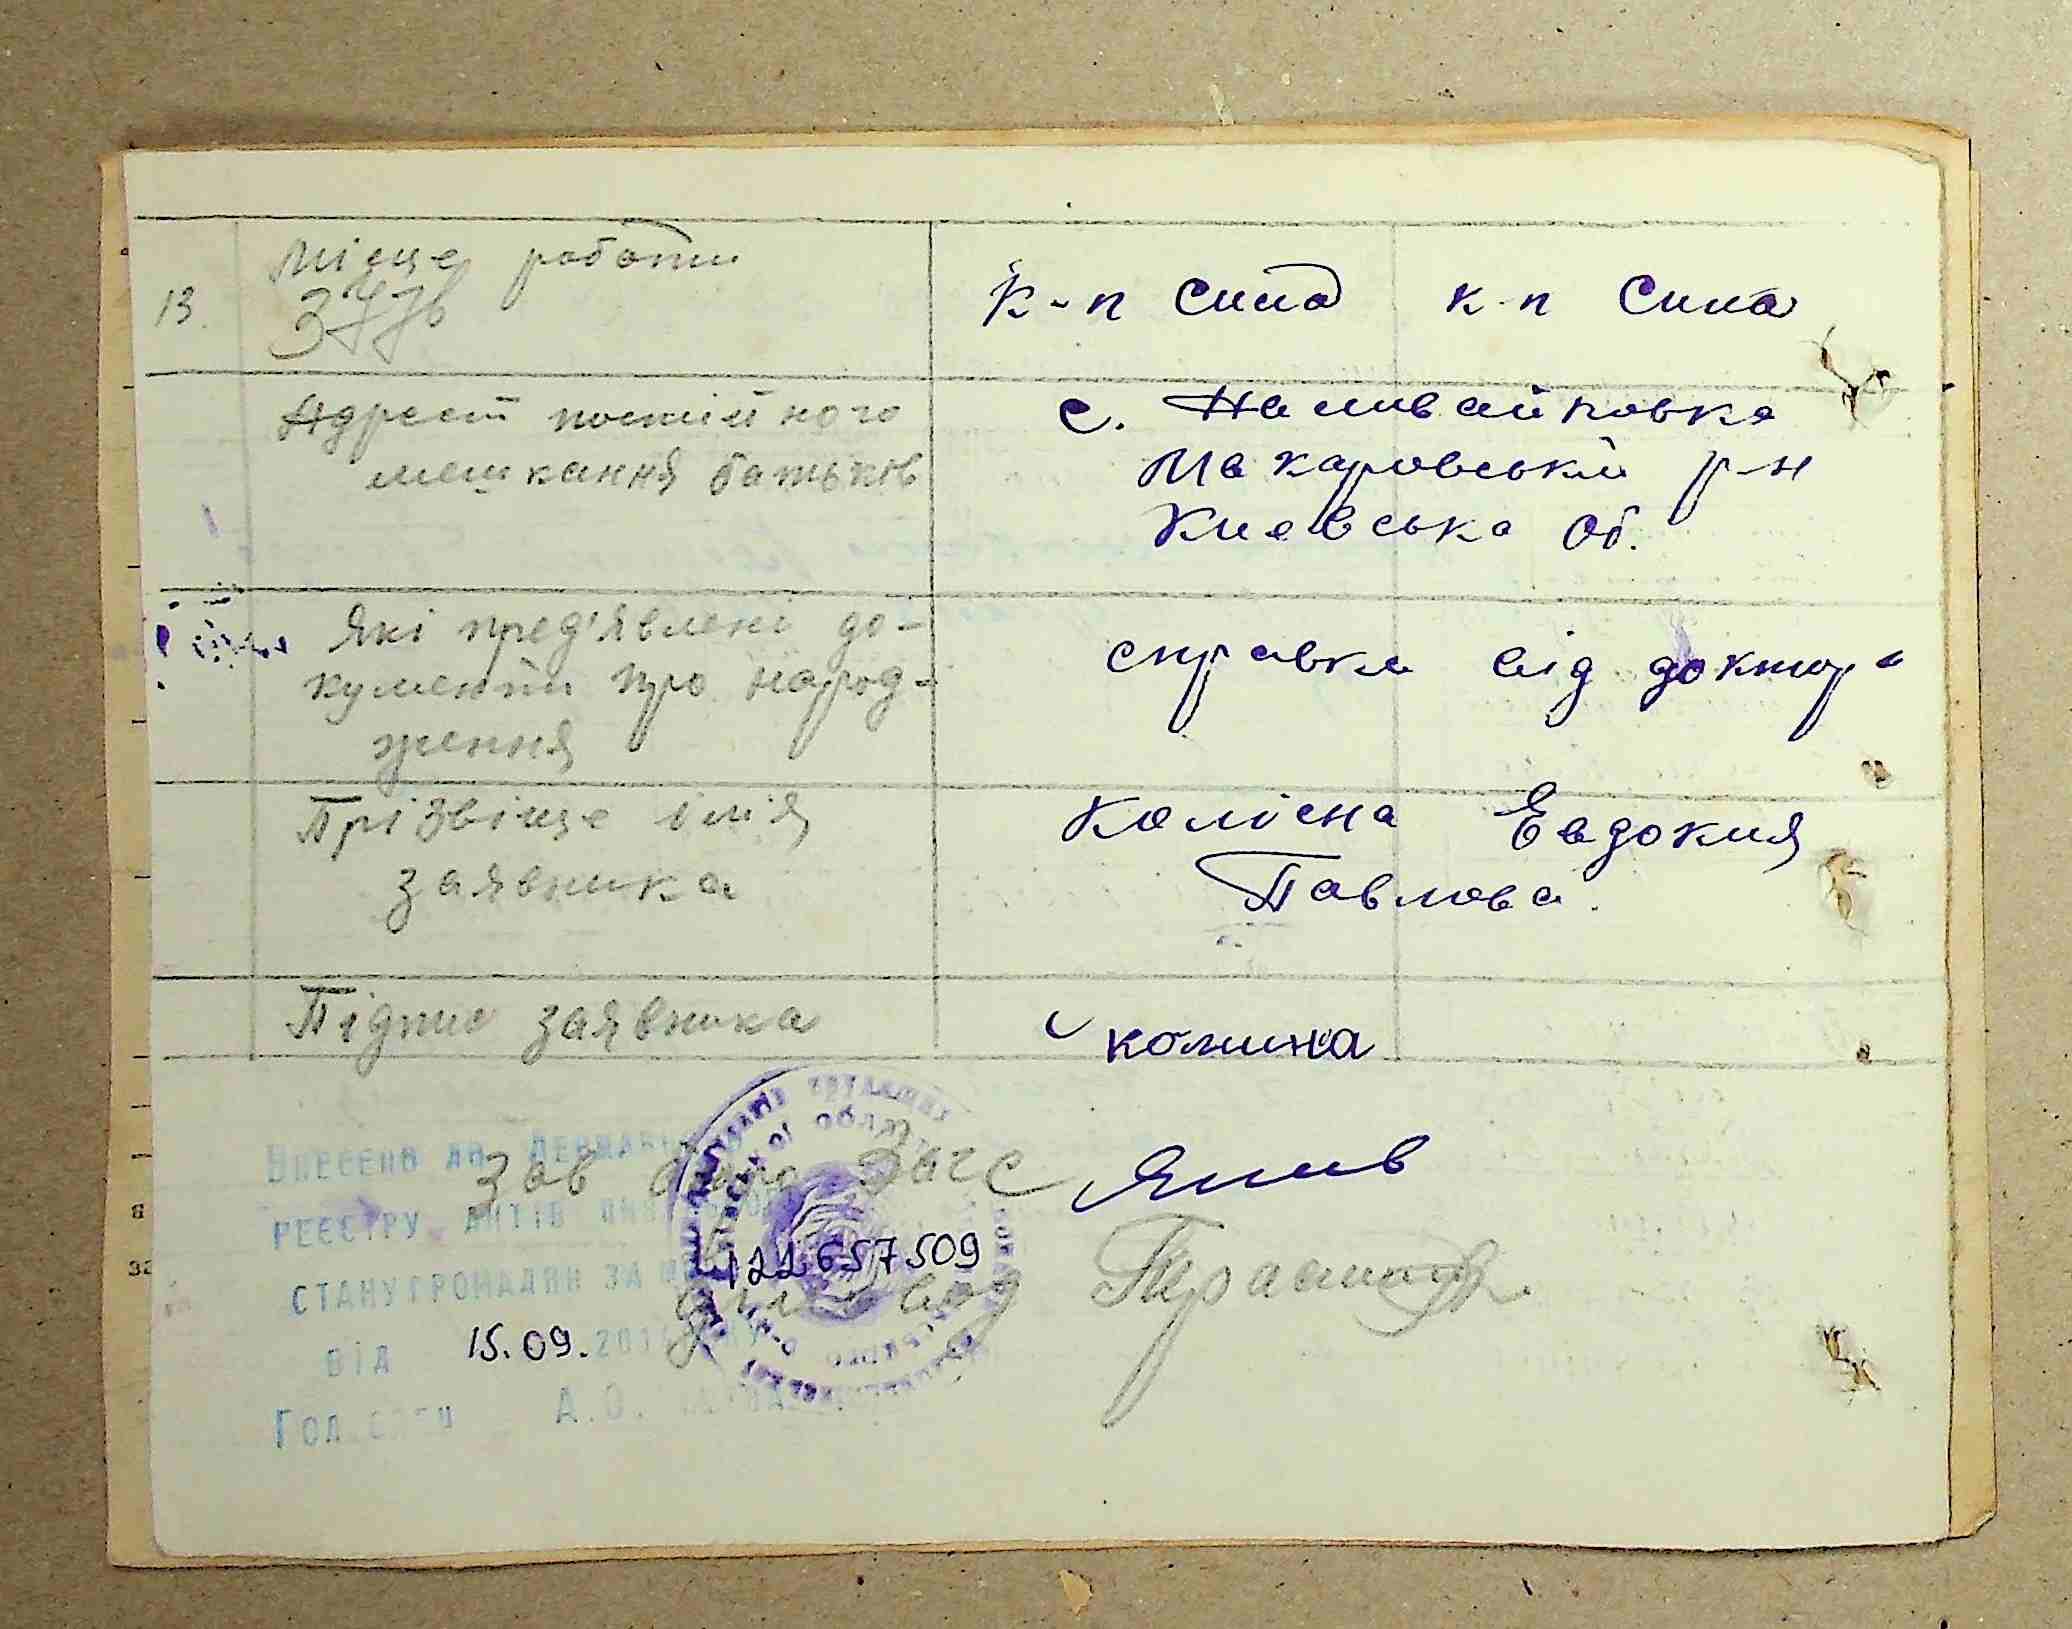 13. Місце роботи
377б
к-п Сила к-п Сила
Адрест постійного
мешкання батьків
с. Наливайковка
Макаровський р-н
Киевська Об.
Які пред'явлені до-
кументи про народ-
ження
справка від доктора
Прізвіще імія
заявника
Колісна Евдокия
Павлова.
Підпис заявника
колисна
Зав бюро Загс
діловод
Внесено до Державного
реєстру актів цивільного
стану громадян за №
122657509
від 15.09.201
Гол.спец А.О.